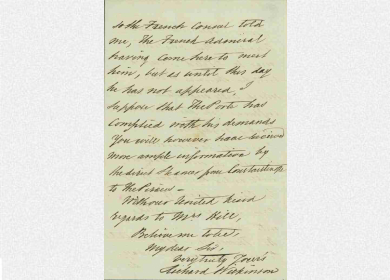 so the French Consul told
me, the French Admiral
having come here to meet
him, but as until this day
he has not appeared, I
suppose that The Porte has
complied with his demands
You will however have received
more ample information by
the direct Steamer from Constantinople
to the Piraeus –
With our united kind
regards to Mrs Hill,
Believe me to be,
My dear Sir,
Very truly Yours
Richard Wilkinson